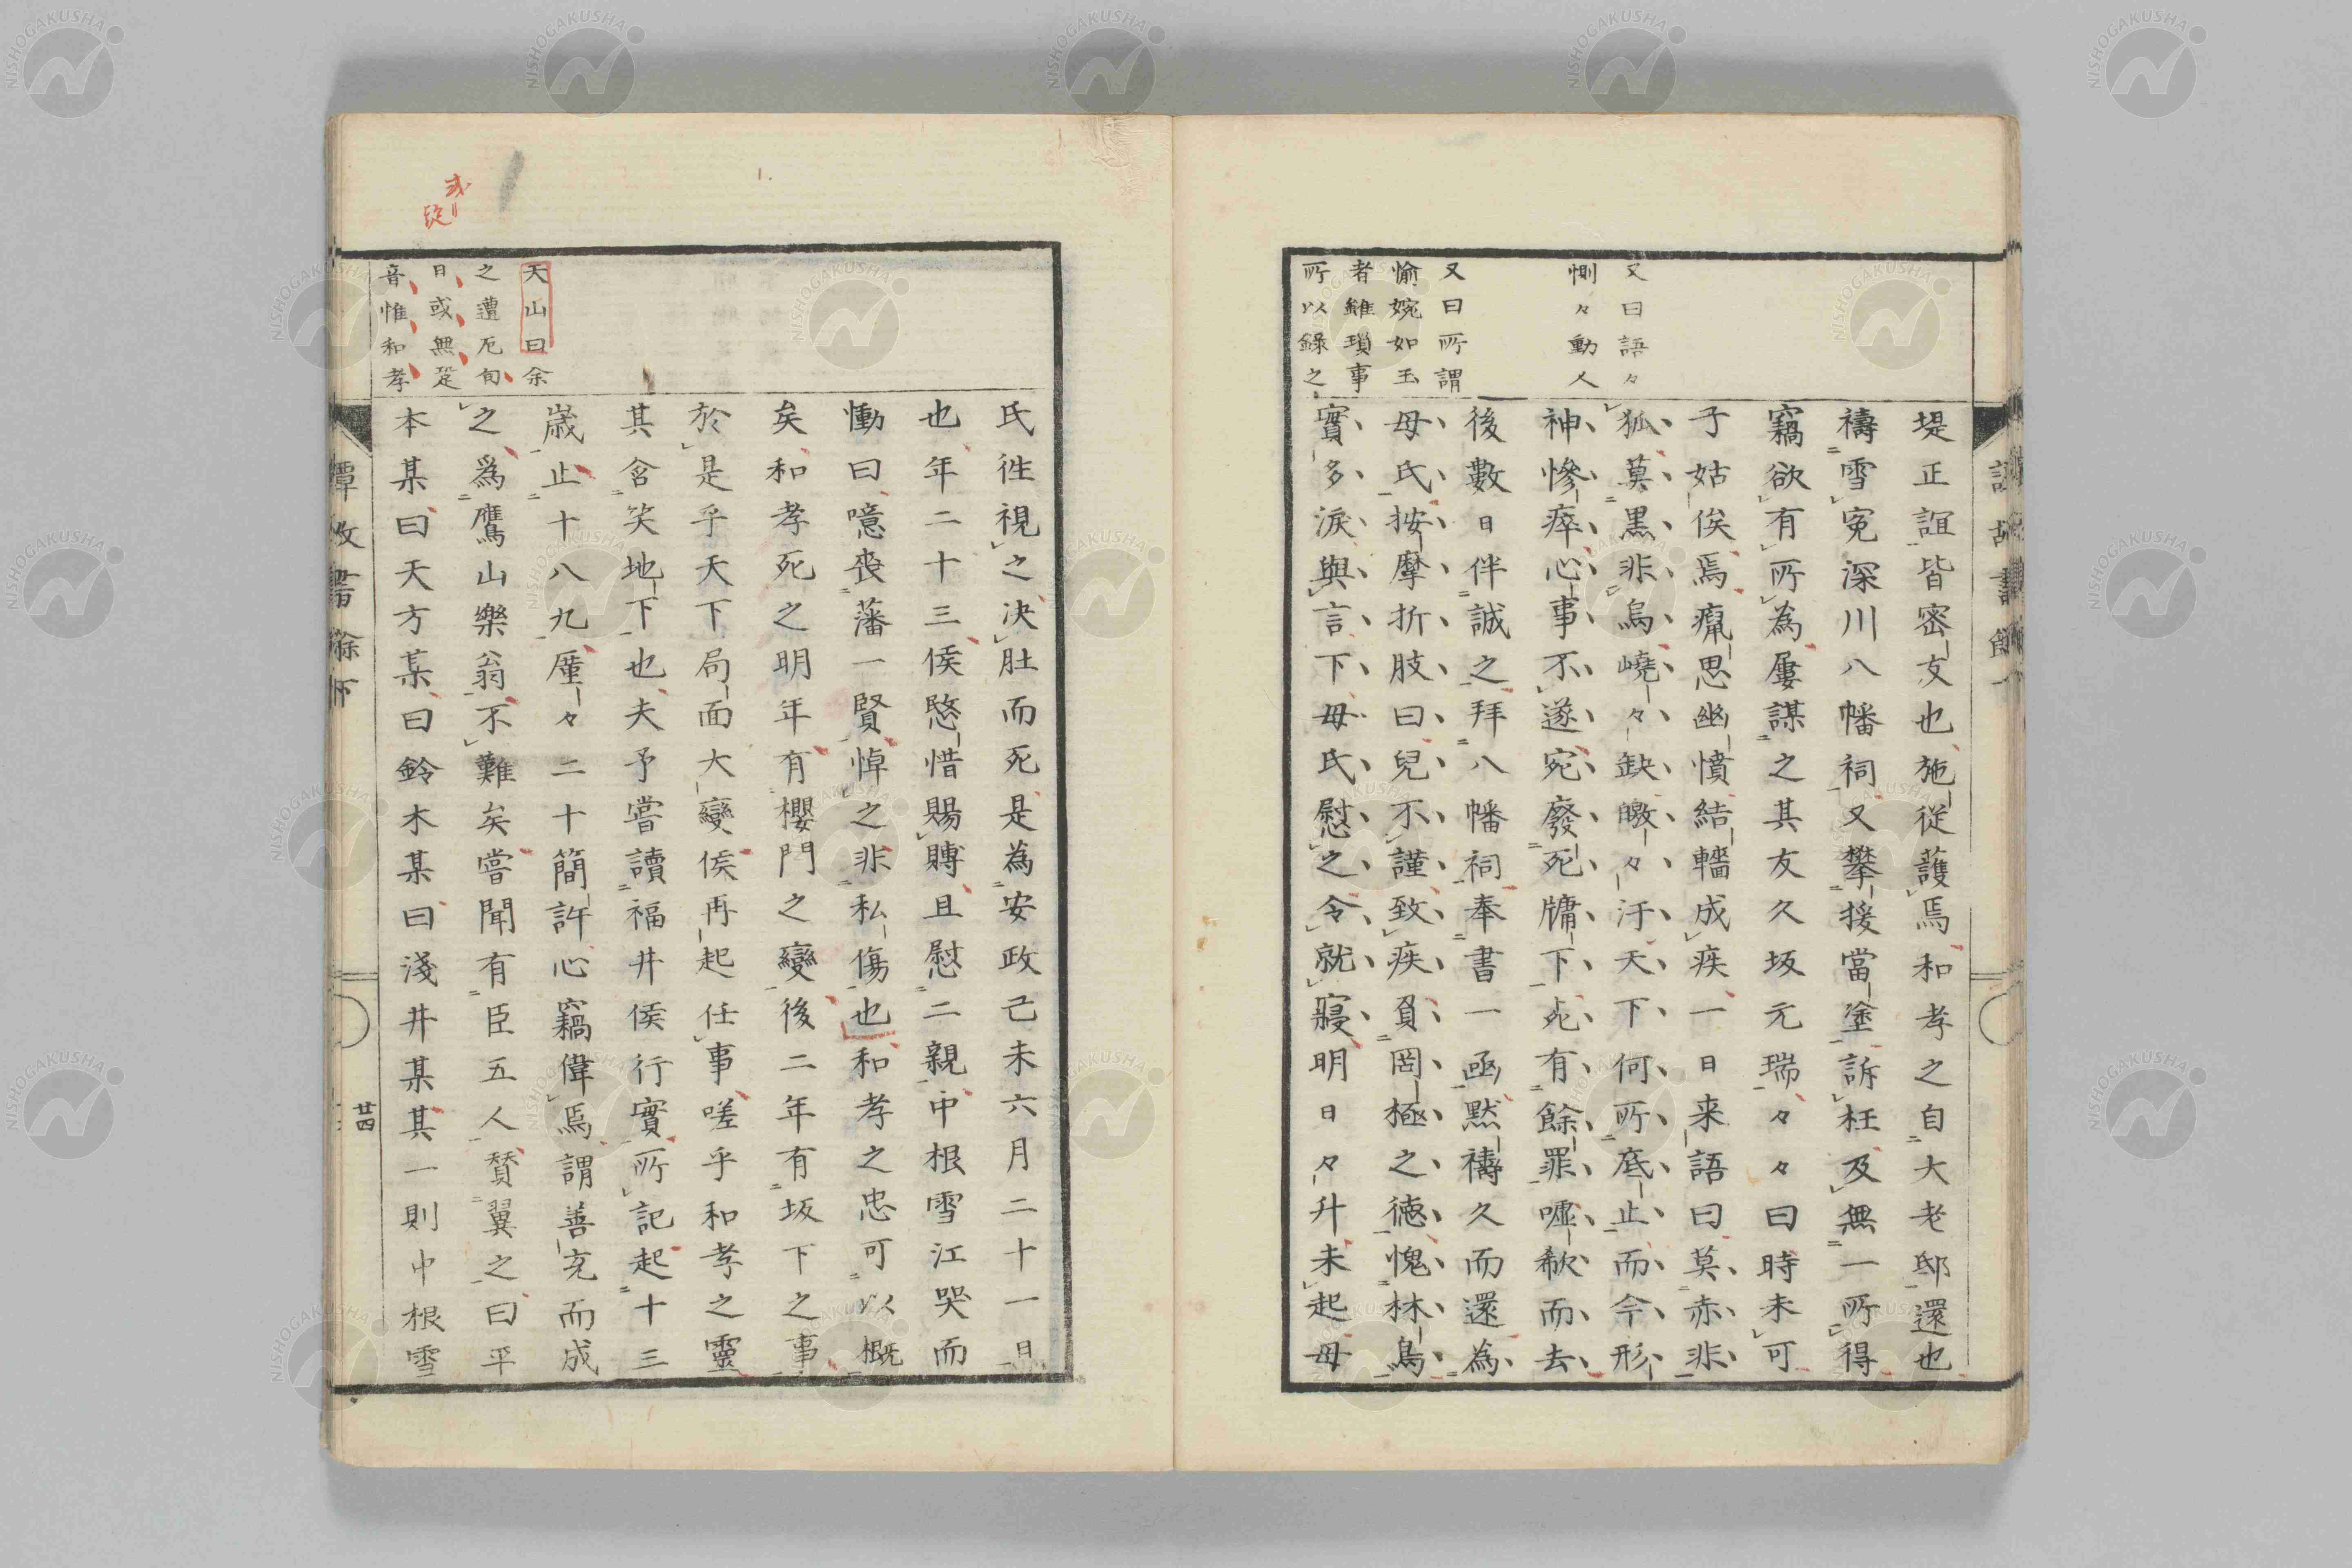 又曰語々
惻々動人
又曰所謂
愉婉如玉
者雖瑣事
所以錄之
堤正誼皆密友也施従護焉和孝之自大老邸還也
禱雪冤深川八幡祠又攀援當塗訴枉及無一所得
竊欲有所為屢謀之其友久坂元瑞々々曰時未可
子姑俟焉癙思幽憤結轖成疾一日来語曰莫赤非
狐莫黒非烏嶢々缺皦々汙天下何所底止而今形
神慘瘁心事不遂宛廢死牖下死有餘罪噓欷而去
後數日伴誠之拜八幡祠奉書一函黙禱久而還為
母氏按摩折肢曰兒不謹致疾負罔極之徳愧林烏
實多淚與言下母氏慰之令就寢明日々升未起母
天山曰余
之遭厄旬
日或無跫
音惟和孝
氏徃視之决肚而死是為安政己未六月二十一日
也年二十三侯愍惜賜賻且慰二親中根雪江哭而
慟曰噫喪藩一賢悼之非私傷也和孝之忠可以概
矣和孝死之明年有櫻門之變後二年有坂下之事
於是乎天下局面大變侯再起任事嗟乎和孝之靈
其含笑地下也夫予嘗讀福井侯行實所記起十三
歳止十八九厪々二十簡許心竊偉焉謂善充而成
之爲鷹山樂翁不難矣嘗聞有臣五人賛翼之曰平
本某曰天方某曰鈴木某曰淺井某其一則中根雪
廿四
NISHOGAKUSHA